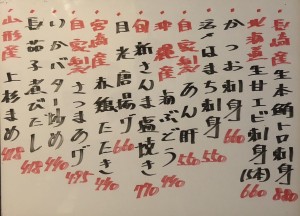 長崎産生本鮪トロ刺身 880
北海道生甘エビ刺身(5本) 660
かつお刺身 660
活〆はまち刺身 550
自家製あん肝 550
沖縄産海ぶどう 440
旬新さんま塩焼き 770
目光唐揚げ 660
宮崎産赤鶏たたき 440
自家製さつまあげ 495
いかバター炒め 440
長茄子煮びたし 418
山形産上杉まめ 418